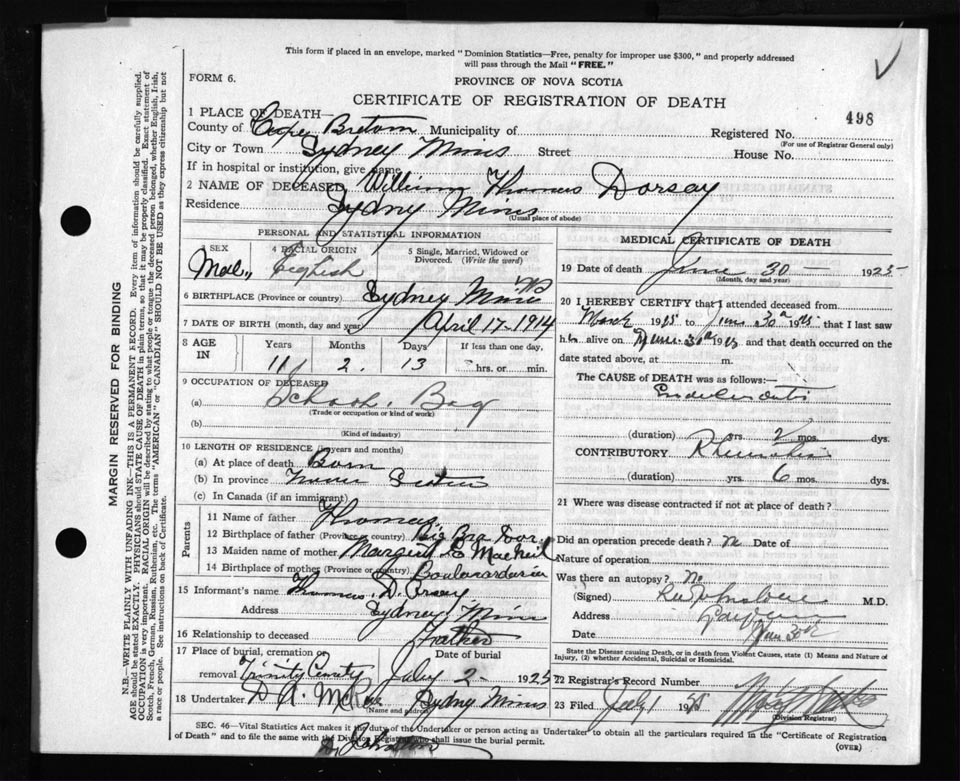 This form if placed in an envelope, marked "Dominion Statistics—Free, penalty for improper use $300," and properly addressed
will pass through the Mail "FREE."
FORM 6.
PROVINCE OF NOVA SCOTIA
CERTIFICATE OF REGISTRATION OF DEATH
498
1 PLACE OF DEATH—
County of Cape Breton Municipality of Registered No.
(For use of Registrar General only)
City or Town Sydney Mines Street House No.
If in hospital or institution, give name
2 NAME OF DECEASED William Thomas Dorsay
Residence Sydney Mines
(Usual place of abode)
PERSONAL AND STATISTICAL INFORMATION
3 SEX 4 RACIAL ORIGIN 5 Single, Married, Widowed or
Divorced. (Write the word)
Male English
6 BIRTHPLACE (Province or country) Sydney Mines
7 DATE OF BIRTH (month, day and year) April 17-1914
8 AGE IN Years Months Days If less than one day,
11 2 13 hrs. or min.
9 OCCUPATION OF DECEASED
(a) School Boy
(Trade or occupation or kind of work)
(b)
(Kind of industry)
10 LENGTH OF RESIDENCE (in years and months)
(a) At place of death Born
(b) In province Nova Scotia
(c) In Canada (if an immigrant)
Parents
11 Name of father Thomas
12 Birthplace of father (Province or country) Big Bra Dor
13 Maiden name of mother MacNeil
14 Birthplace of mother (Province or country) Boulardarie
15 Informant's name Thomas D'orsay
Address Sydney Mines
16 Relationship to deceased Father
17 Place of burial, cremation or removal Date of burial
Trinity July 2- 1925
18 Undertaker D. A. McRae Sydney Mines
(Name and address)
MEDICAL CERTIFICATE OF DEATH
19 Date of death June 30 — 1925
(Month, day and year)
20 I HEREBY CERTIFY that I attended deceased from
March 1925 to June 30 1925 that I last saw
h alive on June 30 1925 and that death occurred on the
date stated above, at m.
The CAUSE OF DEATH was as follows:—
Endocarditis
(duration) yrs. 2 mos. dys.
CONTRIBUTORY Rheumatism
(duration) yrs. 6 mos. dys.
21 Where was disease contracted if not at place of death?
Did an operation precede death? No Date of
Nature of operation
Was there an autopsy? No
(Signed) M.D.
Address
Date June 30
State the Disease causing Death, or in death from Violent Causes, state (1) Means and Nature of
Injury, (2) whether Accidental, Suicidal or Homicidal.
22 Registrar's Record Number
23 Filed July 1 1925
(Division Registrar)
SEC. 46—Vital Statistics Act makes it the duty of the Undertaker or person acting as Undertaker to obtain all the particulars required in the "Certificate of Registration
of Death" and to file the same with the Division Registrar who shall issue the burial permit.
(OVER)
MARGIN RESERVED FOR BINDING
N.B.—WRITE PLAINLY WITH UNFADING INK—THIS IS A PERMANENT RECORD. Every item of information should be carefully supplied.
AGE should be stated EXACTLY. PHYSICIANS should STATE CAUSE OF DEATH in plain terms, so that it may be properly classified. Exact statement of
OCCUPATION is very important. RACIAL ORIGIN will be described by stating to what people or tongue the deceased person belonged, whether English, Irish,
Scotch, French, German, Russian, Ruthenian, etc. The terms "AMERICAN" or "CANADIAN" SHOULD NOT BE USED as they express citizenship but not
a race or people. See instructions on back of Certificate.